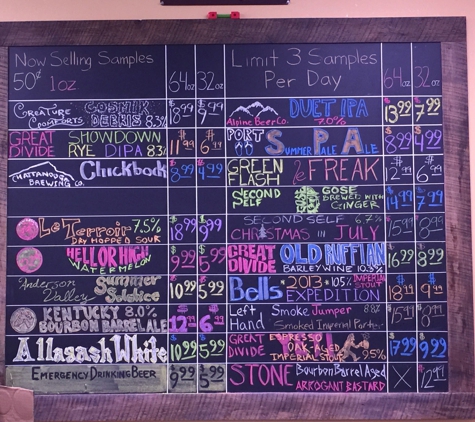 Now Selling Samples
50¢ 1oz
64oz 32oz
Creature Comforts Cosmik Debris 8.3% $18.99 $9.99
Great Divide Showdown Rye DIPA 8.3% $11.99 $6.49
Chattanooga Brewing Co. Chickbock $8.99 $4.99
Le Terroir 7.5% $18.99 $9.99
Dry Hopped Sour
Hell or High Watermelon $9.99 $5.99
Anderson Valley Summer Solstice $10.99 $5.99
Kentucky 8.0% Bourbon Barrel Ale $12.99 $6.99
Allagash White $10.99 $5.99
Emergency Drinking Beer $9.99 $5.99
Limit 3 Samples
Per Day
64oz 32oz
Alpine Beer Co. Duet IPA 7.0% $13.99 $7.99
Port SPA Summer Pale Ale $8.99 $4.99
Green Flash le Freak $12.99 $6.99
Second Self Gose Brewed with Ginger
Second Self 6.7%
Christmas in July $15.99 $8.99
Great Divide Old Ruffian $16.99 $8.99
Barley Wine 10.3%
Bells *2013* 10.5% Imperial Stout
Expedition $18.99 $9.99
Left Hand Smoke Jumper 8.8% $15.99 $8.99
Smoked Imperial Porter
Great Divide Yeti Espresso Oak-Aged Imperial Stout 9.5% $17.99 $9.99
Stone Bourbon Barrel Aged Arrogant Bastard X $12.99